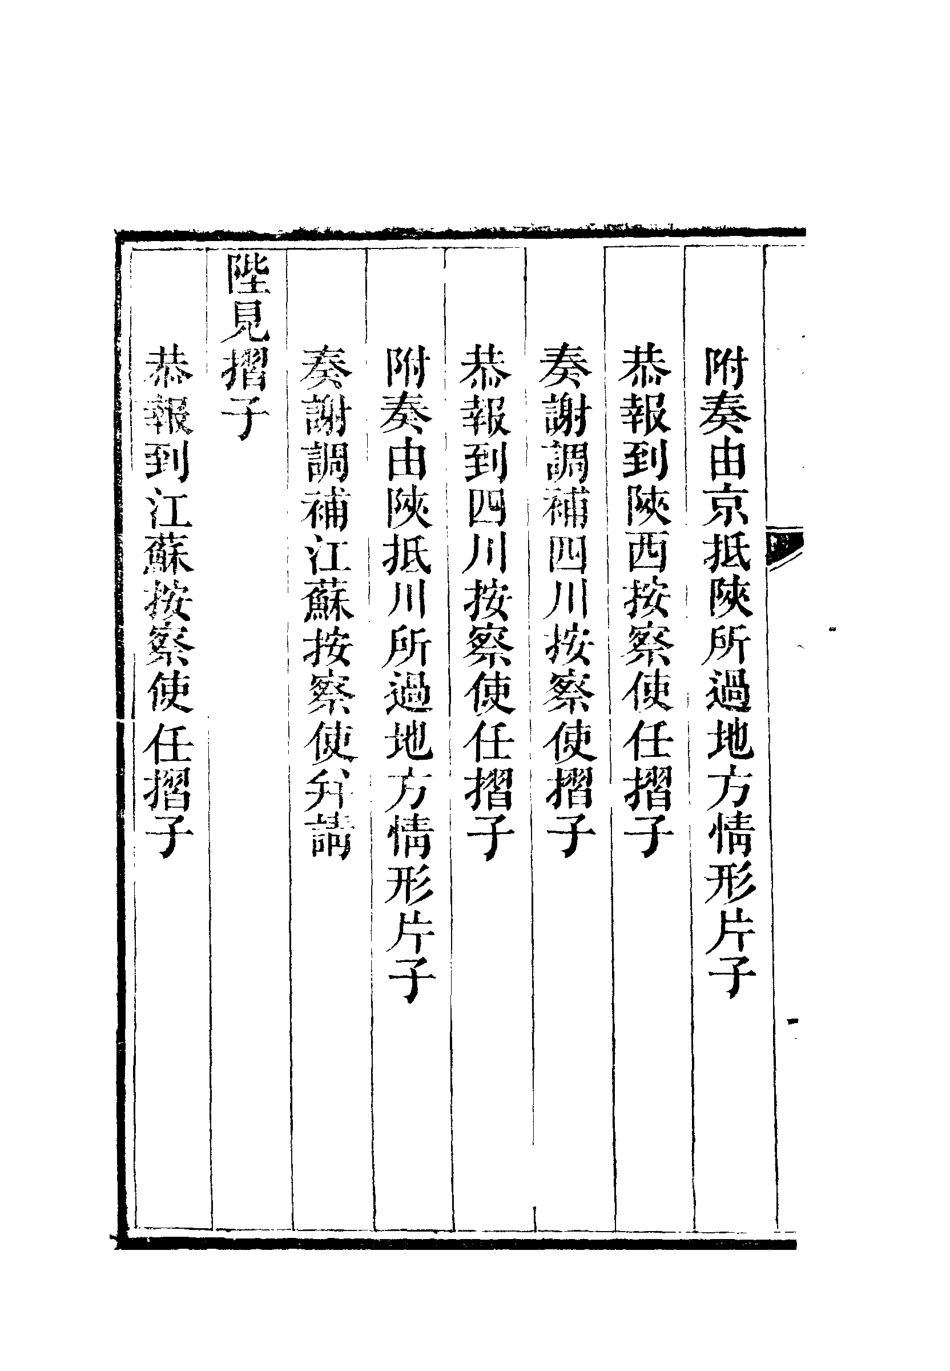 附奏由京抵陝所過地方情形片子
恭報到陝西按察使任摺子
奏謝調補四川按察使摺子
恭報到四川按察使任摺子
附奏由陝抵川所過地方情形片子
奏謝調補江蘇按察使并請
陛見摺子
恭報到江蘇按察使任摺子